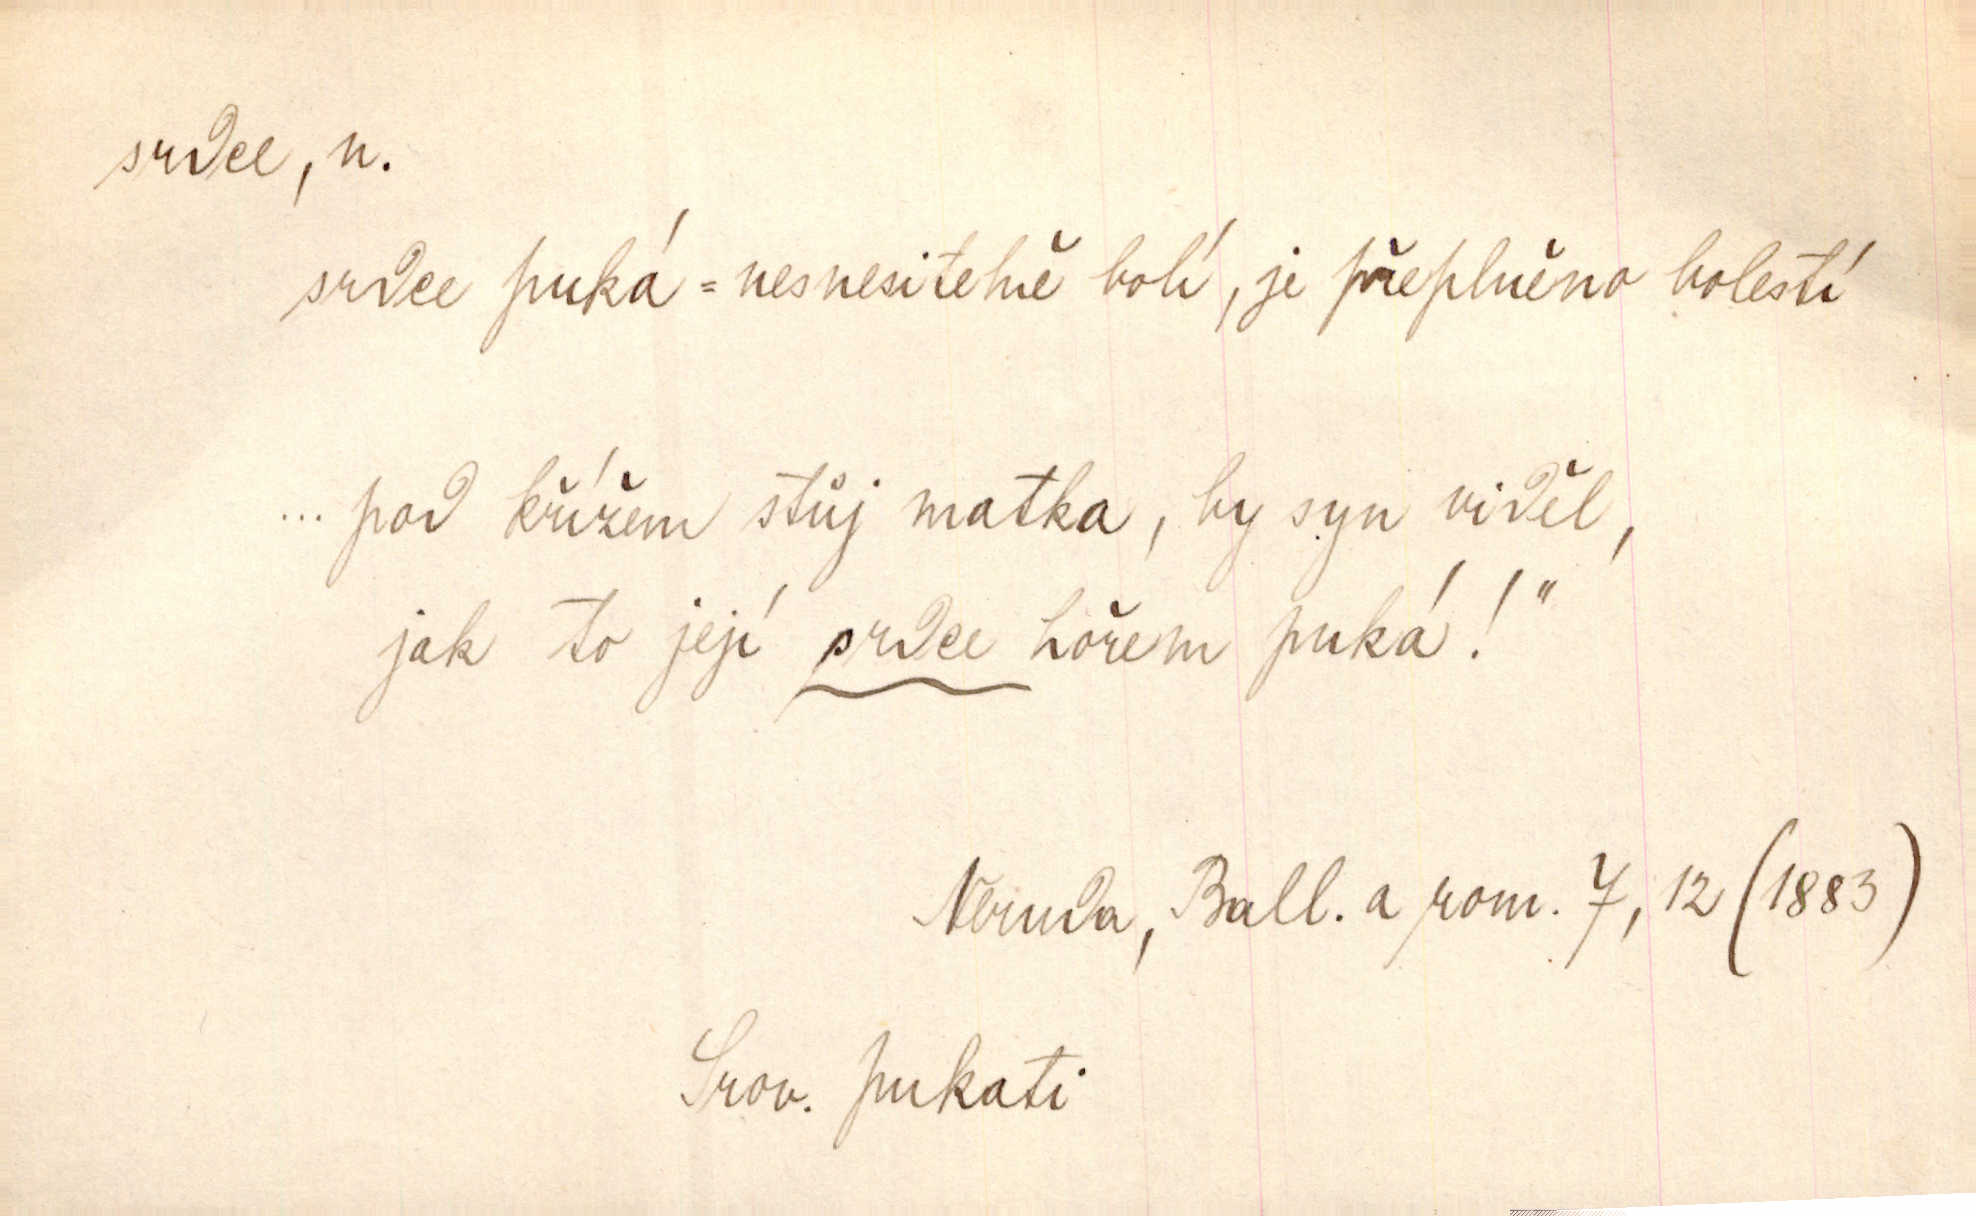 srdce, n.
srdce puká = nesnesitelně bolí, je přeplněno bolestí
... pod křížem stůj matka, by syn viděl,
jak to její srdce hořem puká!"
Neruda, Ball. a rom. 7, 12 (1883)
Srov. pukati